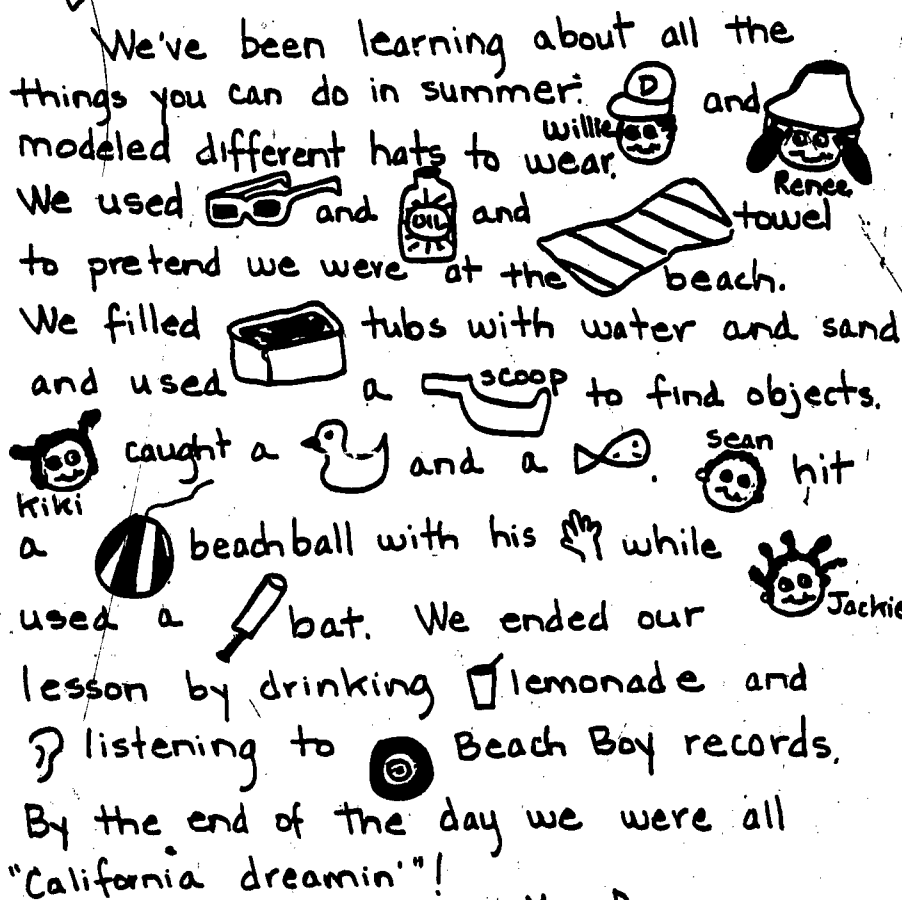 We've been learning about all the
things you can do in summer. Willie D and Renee
modeled different hats to wear.
We used and OIL and towel
to pretend we were at the beach.
We filled tubs with water and sand
and used a scoop to find objects.
Kiki caught a and a . Sean hit
a beachball with his while Jackie
used a bat. We ended our
lesson by drinking lemonade and
listening to Beach Boy records.
By the end of the day we were all
"California dreamin'"!